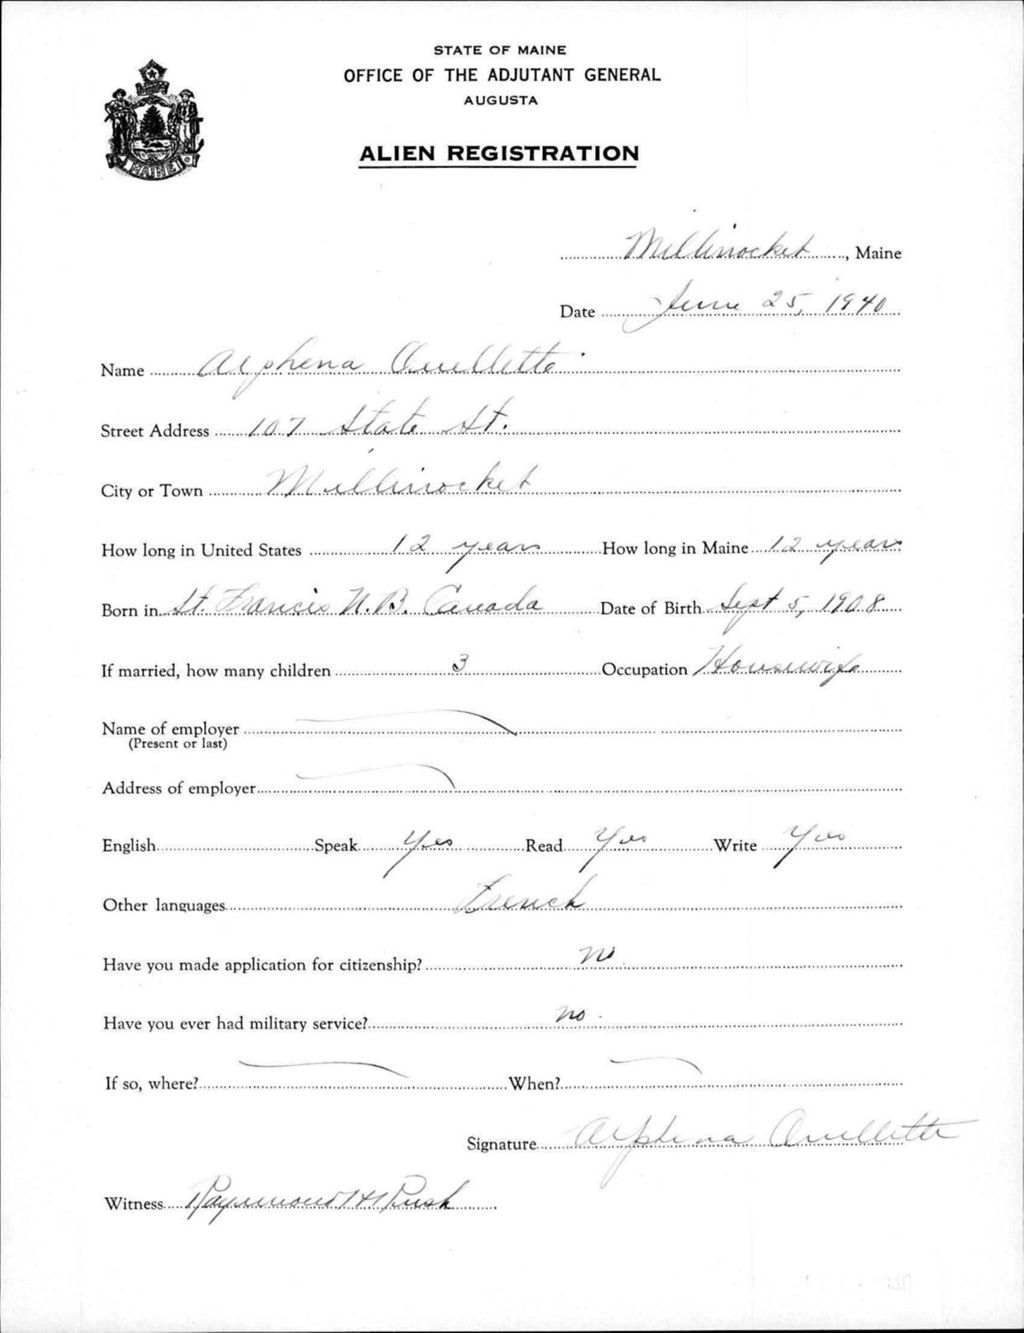 STATE OF MAINE
OFFICE OF THE ADJUTANT GENERAL
AUGUSTA
ALIEN REGISTRATION
MAINE
Millinocket, Maine
Date June 25, 1940
Name Alphena Ouellette
Street Address 107 State St.
City or Town Millinocket
How long in United States 12 years How long in Maine 12 years
Born in St. Francis N.B. Canada Date of Birth Sept 5, 1908
If married, how many children 3 Occupation Housewife
Name of employer
(Present or last)
Address of employer
English Speak Yes Read Yes Write Yes
Other languages French
Have you made application for citizenship? no
Have you ever had military service? no
If so, where? When?
Signature Alphena Ouellette
Witness Raymond H Rush